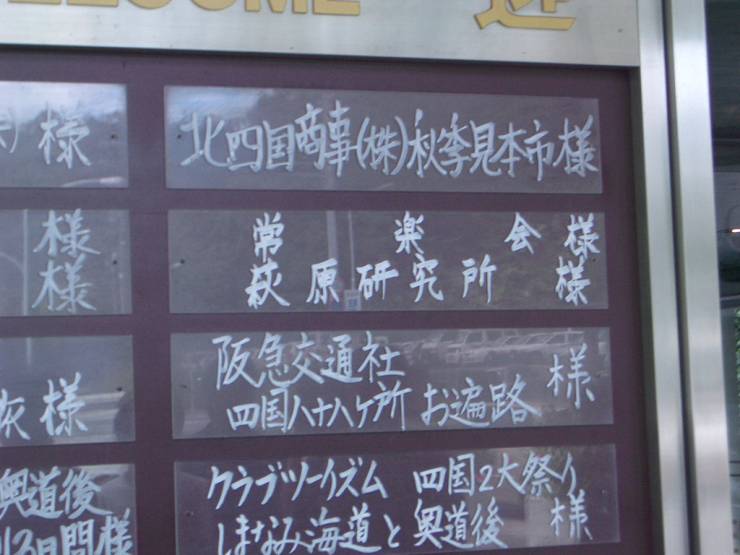 WELCOME 迎
様
北四国商事(株)秋季見本市様
様
様
常楽会様
萩原研究所様
様
阪急交通社
四国八十八ケ所お遍路様
奥道後
3日間様
クラブツーリズム 四国2大祭り
しまなみ海道と奥道後様